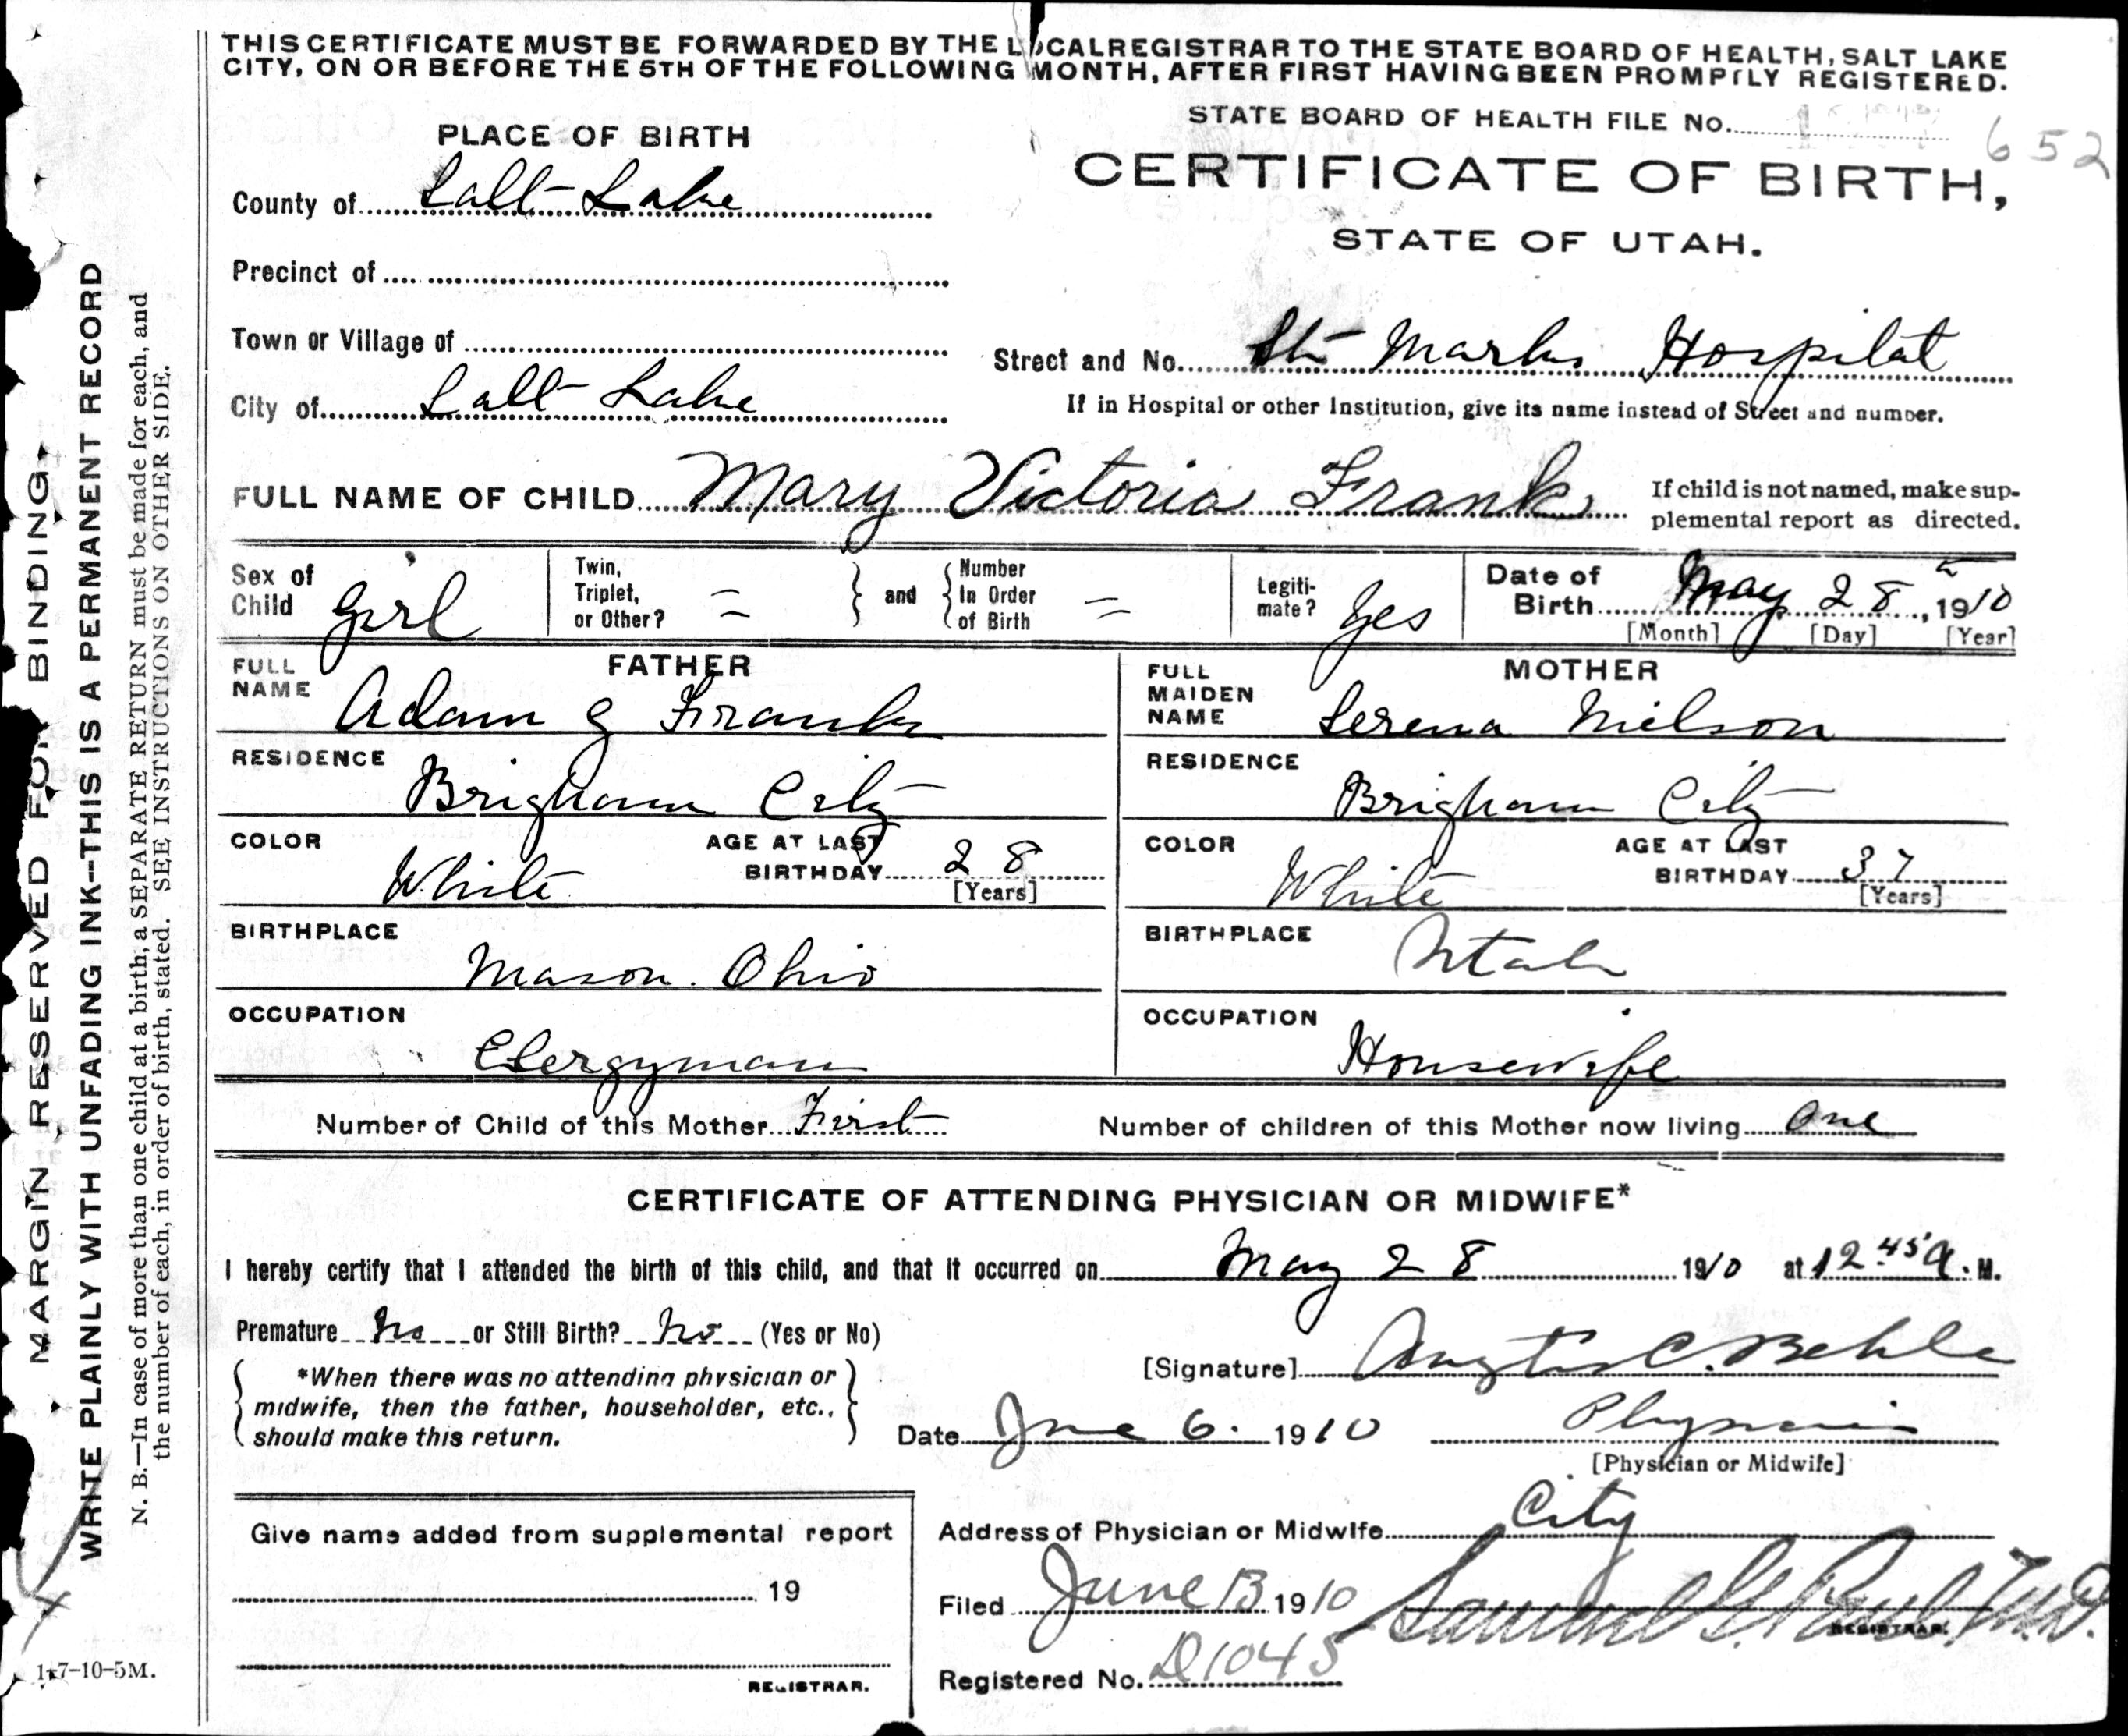 THIS CERTIFICATE MUST BE FORWARDED BY THE LOCAL REGISTRAR TO THE STATE BOARD OF HEALTH, SALT LAKE
CITY, ON OR BEFORE THE 5TH OF THE FOLLOWING MONTH, AFTER FIRST HAVING BEEN PROMPTLY REGISTERED.
STATE BOARD OF HEALTH FILE No. 652
PLACE OF BIRTH
CERTIFICATE OF BIRTH,
STATE OF UTAH.
County of Salt Lake
Precinct of
Town or Village of
Street and No. St Marks Hospital
City of Salt Lake
If in Hospital or other Institution, give its name instead of Street and number.
FULL NAME OF CHILD Mary Victoria Frank
If child is not named, make sup-
plemental report as directed.
Sex of Child girl
Twin, Triplet, or Other? =
and
Number In Order of Birth =
Legiti-mate? Yes
Date of Birth May 28th, 1910
[Month] [Day] [Year]
FATHER
FULL NAME Adam G Frank
MOTHER
FULL MAIDEN NAME Serena Nielson
RESIDENCE Brigham City
RESIDENCE Brigham City
COLOR White AGE AT LAST BIRTHDAY 28 [Years]
COLOR White AGE AT LAST BIRTHDAY 37 [Years]
BIRTHPLACE Mason. Ohio
BIRTHPLACE Utah
OCCUPATION Clergyman
OCCUPATION Housewife
Number of Child of this Mother First
Number of children of this Mother now living one
CERTIFICATE OF ATTENDING PHYSICIAN OR MIDWIFE*
I hereby certify that I attended the birth of this child, and that it occurred on May 28 1910 at 12.45 a. M.
Premature No or Still Birth? No (Yes or No)
*When there was no attending physician or
midwife, then the father, householder, etc.,
should make this return.
[Signature] C. Behle
Date June 6. 1910
Physician
[Physician or Midwife]
Address of Physician or Midwife City
Give name added from supplemental report
19
REGISTRAR.
Filed June 13 1910 Samuel G. Paul M.D.
REGISTRAR.
Registered No. D1045
MARGIN RESERVED FOR BINDING
WRITE PLAINLY WITH UNFADING INK--THIS IS A PERMANENT RECORD
N. B.—In case of more than one child at a birth, a SEPARATE RETURN must be made for each, and
the number of each, in order of birth, stated. SEE INSTRUCTIONS ON OTHER SIDE.
4
17-10-5M.